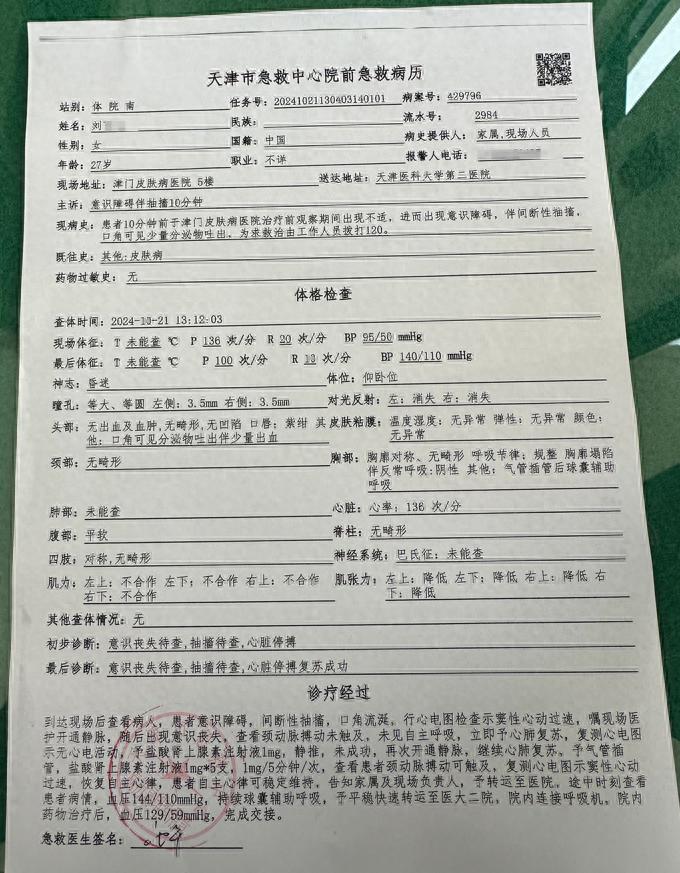 天津市急救中心院前急救病历
站别: 体 院 南 任务号: 20241021130403140101 病案号: 429796
姓名: 刘 民族: 流水号: 2984
性别: 女 国籍: 中国 病史提供人: 家属,现场人员
年龄: 27岁 职业: 不详 报警人电话:
现场地址: 津门皮肤病医院 5楼 送达地址: 天津医科大学第二医院
主诉: 意识障碍伴抽搐10分钟
现病史: 患者10分钟前于津门皮肤病医院治疗前观察期间出现不适, 进而出现意识障碍, 伴间断性抽搐,
口角可见少量分泌物吐出, 为求救治由工作人员拨打120。
既往史: 其他:皮肤病
药物过敏史: 无
体格检查
查体时间: 2024-10-21 13:12:03
现场体征: T 未能查 ℃ P 136 次/分 R 20 次/分 BP 95/50 mmHg
最后体征: T 未能查 ℃ P 100 次/分 R 次/分 BP 140/110 mmHg
神志: 昏迷 体位: 仰卧位
瞳孔: 等大、等圆 左侧: 3.5mm 右侧: 3.5mm 对光反射: 左: 消失 右: 消失
头部: 无出血及血肿,无畸形,无凹陷 口唇: 紫绀 其 皮肤粘膜: 温度湿度: 无异常 弹性: 无异常 颜色:
他: 口角可见分泌物吐出伴少量出血 无异常
颈部: 无畸形 胸部: 胸廓对称、无畸形 呼吸节律: 规整 胸廓塌陷
伴反常呼吸:阴性 其他: 气管插管后球囊辅助
呼吸
肺部: 未能查 心脏: 心率: 136 次/分
腹部: 平软 脊柱: 无畸形
四肢: 对称,无畸形 神经系统: 巴氏征: 未能查
肌力: 左上: 不合作 左下: 不合作 右上: 不合作 肌张力: 左上: 降低 左下: 降低 右上: 降低 右
右下: 不合作 下: 降低
其他查体情况: 无
初步诊断: 意识丧失待查,抽搐待查,心脏停搏
最后诊断: 意识丧失待查,抽搐待查,心脏停搏复苏成功
诊疗经过
到达现场后查看病人, 患者意识障碍, 间断性抽搐, 口角流涎。行心电图检查示窦性心动过速, 嘱现场医
护开通静脉, 随后出现意识丧失。查看患者颈动脉搏动未触及, 未见自主呼吸, 立即予心肺复苏, 复测心电图
示无心电活动, 予盐酸肾上腺素注射液1mg, 静推, 未成功, 再次开通静脉, 继续心肺复苏。予气管插
管, 盐酸肾上腺素注射液1mg*5支, 1mg/5分钟/次, 查看患者颈动脉搏动可触及, 复测心电图示窦性心动
过速, 恢复自主心律, 患者自主心律可稳定维持, 告知家属及现场负责人, 予转运至医院。途中时刻查看
患者病情, 血压144/110mmHg, 持续球囊辅助呼吸, 予平稳快速转运至医大二院, 院内连接呼吸机。院内
药物治疗后, 血压129/59mmHg, 完成交接。
急救医生签名: